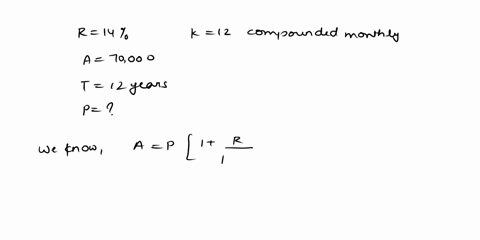 R = 14% K = 12 compounded monthly
A = 70,000
T = 12 years
P = ?
We know, A = P [ 1 + R / 1